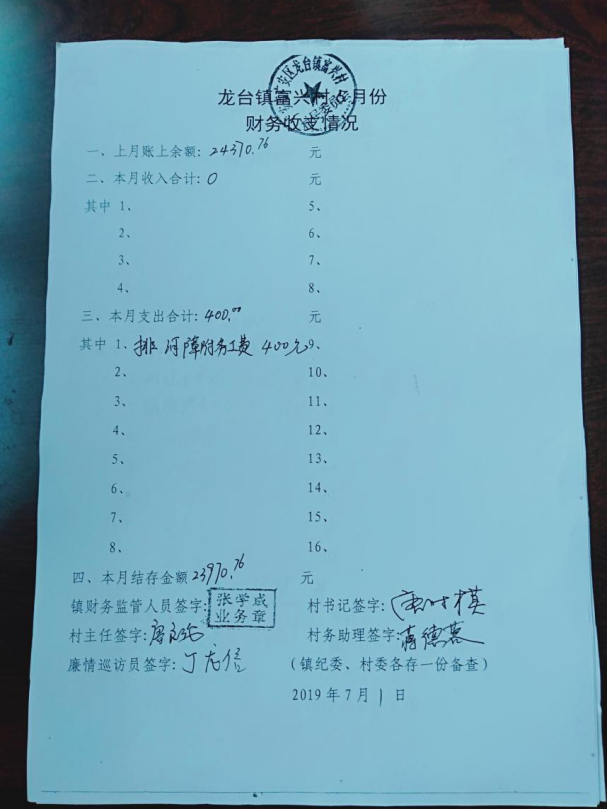 龙台镇富兴村 月份
财务收支情况
一、上月账上余额: 24370.76 元
二、本月收入合计: 0 元
其中 1、 5、
2、 6、
3、 7、
4、 8、
三、本月支出合计: 400.00 元
其中 1、排 障 务工费 400元 9、
2、 10、
3、 11、
4、 12、
5、 13、
6、 14、
7、 15、
8、 16、
四、本月结存金额 23970.76 元
镇财务监管人员签字: 张学成 业务章 村书记签字:
村主任签字: 村务助理签字: 蒋德
廉情巡访员签字: 丁 (镇纪委、村委各存一份备查)
2019年7月1日